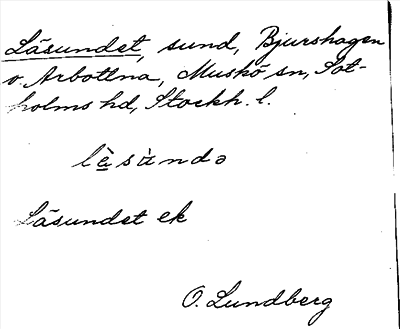 Läsundet, sund, Bjurshagen
o. Arbottna, Muskö sn, Sot-
holms hd, Stockh. l.
lè̱sàndə
Läsundet ek
O. Lundberg